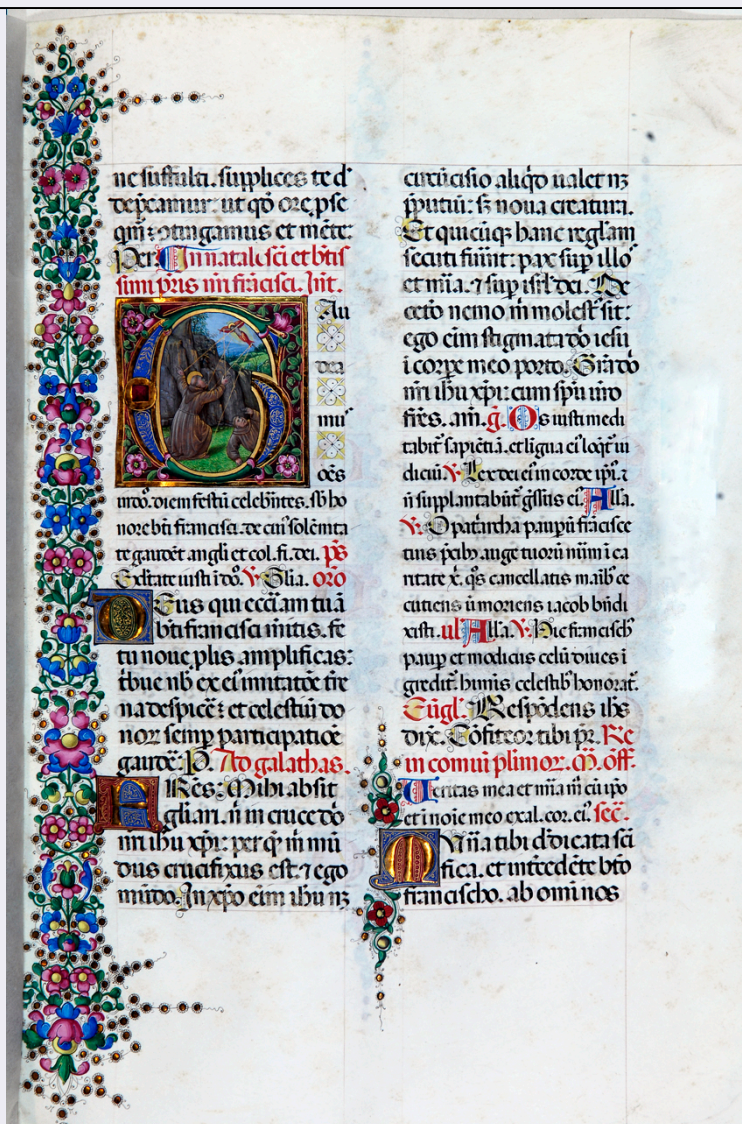 ne suffulti. supplices te d̄
dep̄camur: ut qd̄ ore p̄se
qm̄ 2tingamus et mēte:
Per. In natali sc̄i et bt̄is
simi pr̄is nr̄i frācisci. Int̄.
Gau
dea
mus
oēs
in dō. diem festū celebr̄ntes. sb̄ ho
nore bt̄i francisci. de cuius solēnita
te gaudēt angli et col. fi. dei. p̄s
Exltate iusti ī dō. V. Glia. oro
Deus qui eccl̄am tuā
bt̄i francisci m̄itis. fe
tu noue plis amplificas:
tbue nb̄ ex eius imitatōe t̄re
na despicē: et celestiū do
nor semp̄ participatiōe
gaudē: P. Ad galathas.
FRēs: Mihi absit
gl̄iari. n̄ in cruce dō
nr̄i ihu xp̄i: per quē m̄ mū
dus crucifixus est: 7 ego
mūdo. In xp̄o eīm ihu nz
circūcisio aliqd̄ ualet nz
p̄putiū: sz noua creatura.
Et quicūqz hanc regl̄am
secuti fūint: pax sup̄ illos
et mīa. 7 sup̄ isrl̄ dei. De
cetō nemo m̄ molestus sit:
ego eīm stigmata dō iesu
ī corpe meo porto. Grā dō
nr̄i ihu xp̄i: cum sp̄u uro
frēs. am̄. g̃. Os iusti medi
tabit̄ sapiētiā. et ligua eius loqt̄ iu
diciū. V. Lex dei eius in corde ip̄i. 7
n̄ supplantabūt̄ gs̄sus eius. Alla.
V. O patriarcha paupū frācisce
tuis p̄cibz auge tuorū nūm ī ca
ritate x̄. qs cancellatis maībz ce
cutiens ū moriens iacob bn̄di
xisti. ul Alla. V. Hic franciscus
paup̄ et modicus celū diues ī
gredit̄. hymnis celestibz honorat̄.
Eūgl. Respōdens ihs
dix̄. Cōfiteor tibi pr̄. Re
in comūi plīmor. m̄. off̄.
Ueritas mea et mīa m̄ cū ip̄o
et ī noīe meo exal. cor. eius. sec̄.
Munīa tibi dn̄e dicata sc̄i
fica. et intcedēte bt̄o
francischo. ab omī nos